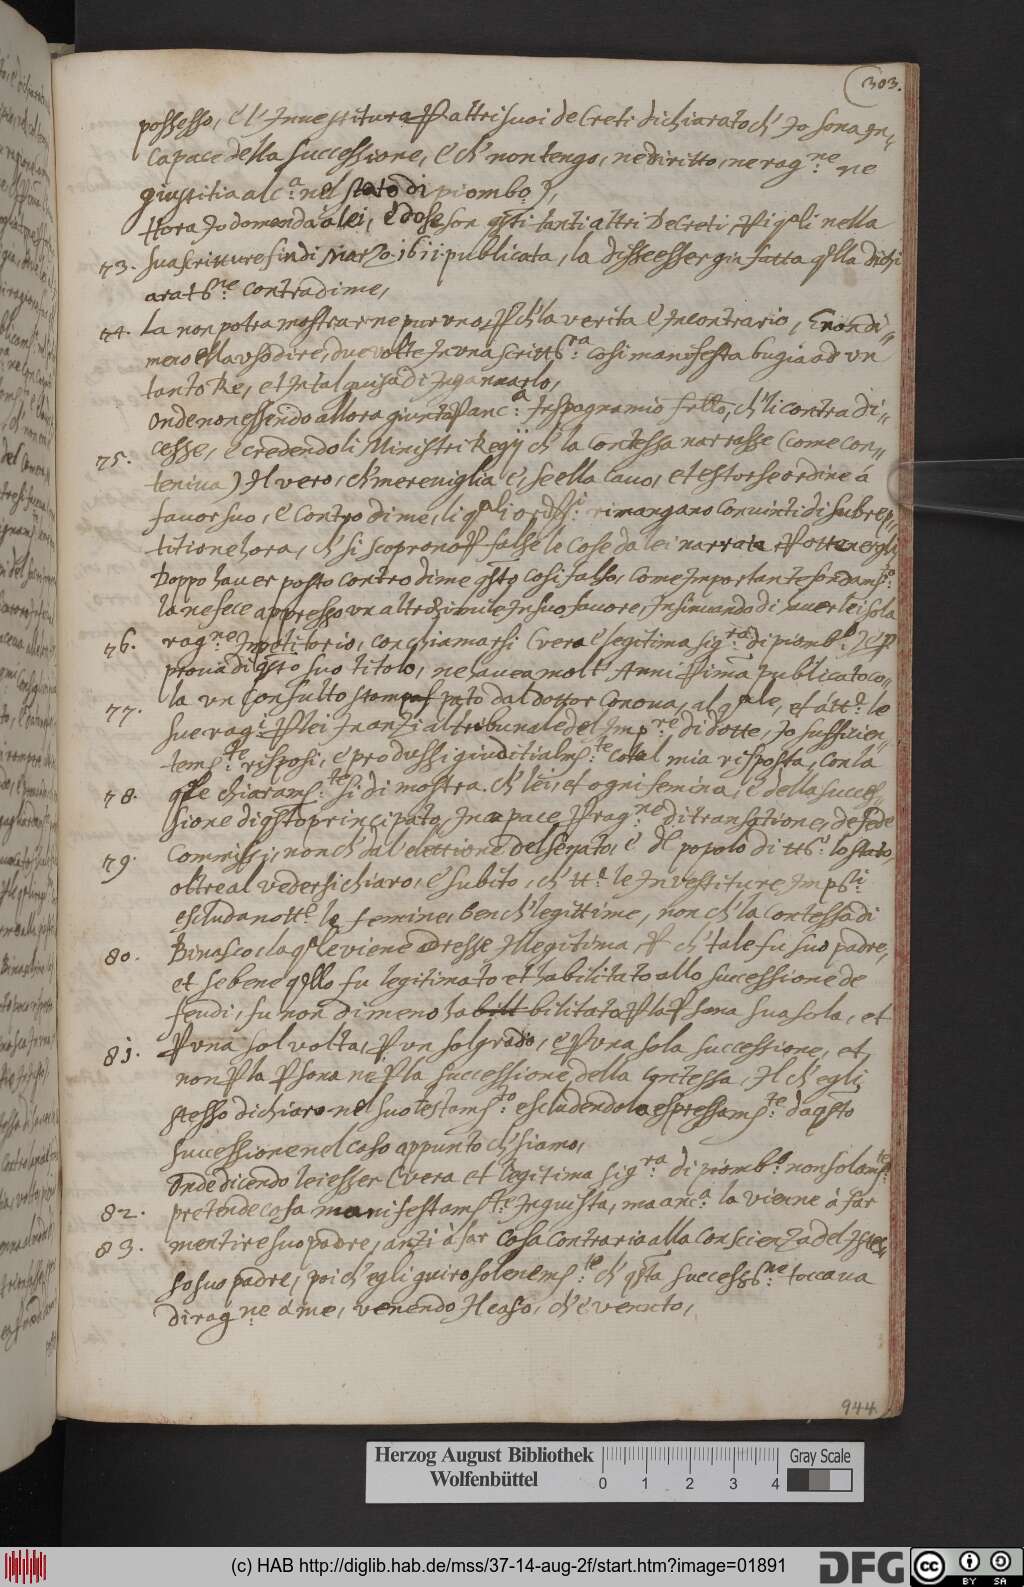 303.
possesso, e l'Inuestitura P altri suoi decreti dichiarato ch' Io sona in„
capace della successione, e ch' non tengo, ne diritto, ne rag.ne ne
giustitia alc.a nel stato di piombo),
Hora Io domanda a lei, e doue son q'sti tanti altri Decreti, P i q'li nella
73. sua scritture fin di Marzo. 1611. publicata, la disse esser gia fatta q'lla dichi
arat.ne contra di me,
74. La non potra mostrarne pur vno, P ch' la verita e In contrario, E non di„
meno ella vso dire, due volte In vna scritt.ra cosi manifesta bugia ad vn
tanto Re, et In tal guisa di Ingannarlo,
Onde non essendo allora giunto P anc.a In spagna mio fr'llo, ch' li contradi„
75. cesse, e credendo li Ministri Regij ch' la Contessa narrasse (come con„
teniua) Il vero, ch' mereuiglia e', se ella cauo, et estorse ordine á
fauor suo, e contro di me, li q'ali ord.i rimangano conuinti di subrep„
titione hora, ch' si scoprono P false le cose da lei narrata P ottenergli
Doppo hauer posto contro di me q'sto cosi falso, come Importante fondam.to
la ne fece appresso vn altro simile In suo fauore, Insinuando di hauer lei sola
76. rag.ne In petitorio, con chiamarsi (vera e' legitima sig.ra di piomb.o) e P
proua di q'sto suo titolo, ne hauea molt' Anni P ima publicato co„
77. la vn Consulto stampato dal dottor Conoua, al q'ale, et á tt.e le
sue rag.i P lei Inanzi al tribunale del Imp.re di dotte, Io sufficien„
tem.te risposi, e produssi giuditialm.te cotal mia risposta, con la
78. q'le chiaram.te si dimostra. ch' lei, et ogni femina, e' della succes„
sione di q'sto principato, Incapace P rag.ne di transatione, de fede
79. commissi, non ch' dal' elettione del Senato, e' del popolo di tt.o lo stato,
oltre al vedersi chiaro, e' subito, ch' tt.e le Inuestiture Imp.li
escludano tt.e le femine, ben ch' legittime, non ch' la Contessa di
80. Binasco, la q'le viene adesse Illegitima, P ch' tale fu suo padre,
et se bene q'llo fu legitimato et habilitato allo successione de
feudi, fu non di meno habilt bilitato P la P sona sua sola, et
81. P vna sol volta, P vn sol grado, e' P vna sola successione, et,
non P la P sona ne P la successione, della contessa, Il ch' egli
stesso dichiaro nel suo testam.to escludendola espressam.te da q'sto
successione nel caso appunto ch' siamo,
Onde dicendo lei esser (vera et legitima sig.ra di piomb.o) non solam.te
82. pretende cosa manifestam.te Ingiusta, ma anc.a la vienne à far
83. mentire suo padre, anzi à far cosa contraria alla conscienza del Istes„
so suo padre, poi ch' egli guiro solenem.te ch' q'sta success.ne toccaua
di rag.ne á me, venendo Il caso, ch' e' venuto,
944.
Herzog August Bibliothek
Wolfenbüttel
0 1 2 3 4
Gray Scale
(c) HAB http://diglib.hab.de/mss/37-14-aug-2f/start.htm?image=01891
DFG
cc BY SA